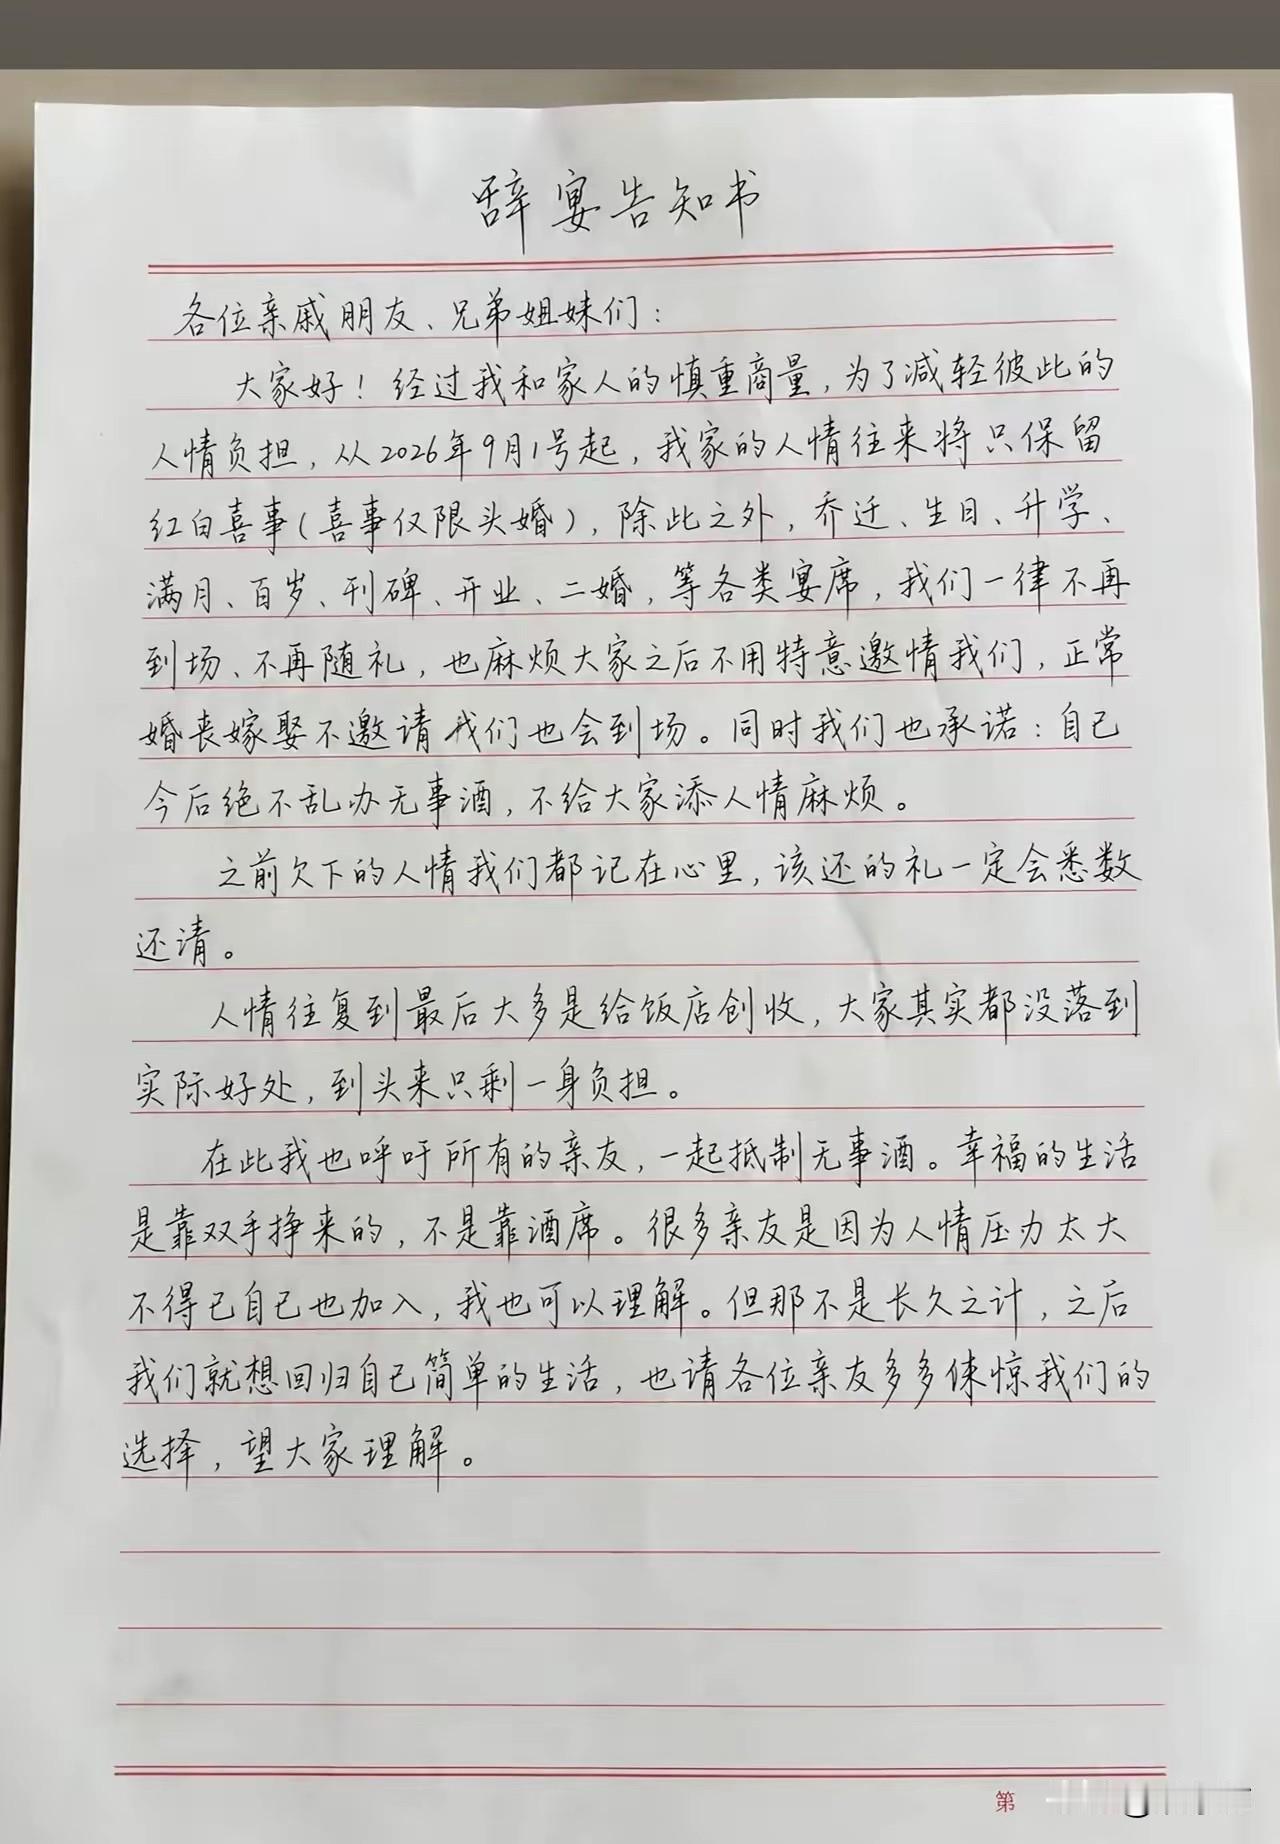 辞宴告知书
各位亲戚朋友、兄弟姐妹们：
大家好！经过我和家人的慎重商量，为了减轻彼此的
人情负担，从2026年9月1号起，我家的人情往来将只保留
红白喜事（喜事仅限头婚），除此之外，乔迁、生日、升学、
满月、百岁、刊碑、开业、二婚，等各类宴席，我们一律不再
到场、不再随礼，也麻烦大家之后不用特意邀情我们，正常
婚丧嫁娶不邀请我们也会到场。同时我们也承诺：自己
今后绝不乱办无事酒，不给大家添人情麻烦。
之前欠下的人情我们都记在心里，该还的礼一定会悉数
还清。
人情往复到最后大多是给饭店创收，大家其实都没落到
实际好处，到头来只剩一身负担。
在此我也呼吁所有的亲友，一起抵制无事酒。幸福的生活
是靠双手挣来的，不是靠酒席。很多亲友是因为人情压力太大
不得已自己也加入，我也可以理解。但那不是长久之计，之后
我们就想回归自己简单的生活，也请各位亲友多多惊我们的
选择，望大家理解。
第